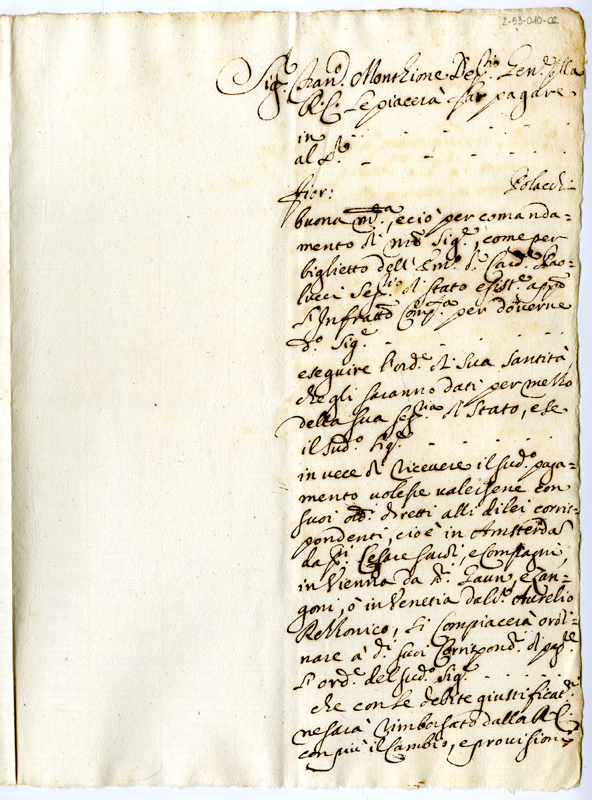 2-53-010-02
Sig.r Fran.o Monthione Dep.rio Gen.le della
R.C. Le piacerà far pagare
in . . . . . .
al S.r - - . . .
fior: Polacchi
buona m.ta, e ciò per comanda=
mento di nro Sig.re, come per
biglietto dell'Em.o S.r Card. Pao=
lucci Seg.rio di Stato esist.e app.o
l'Infratta Comp.ta per doverne
d.o Sig.re . . . . . .
eseguire l'ord.e di Sua Santità
che gli saranno dati per mezzo
della sua Seg.ria di Stato, e se
il sud.o Sig.re - - . . .
in vece di ricevere il sud.o paga=
mento volesse valersene con
suoi ord.i diretti alli di lei corris=
pondenti, cioè in Amsterda
da SS.ri Cesare Sardi, e Compagni,
in Vienna da SS.ri e Zan=
goni, ò in Venetia dal S.r Aurelio
Rezzonico, si compiacerà ordi=
nare à d.i suoi Corrispond.i di pag.re
l'ord.e del sud.o Sig.re - . . .
che con le debite giustificat.ni
ne sarà rimborsato dalla R.C.
con più il Cambio, e provisioni